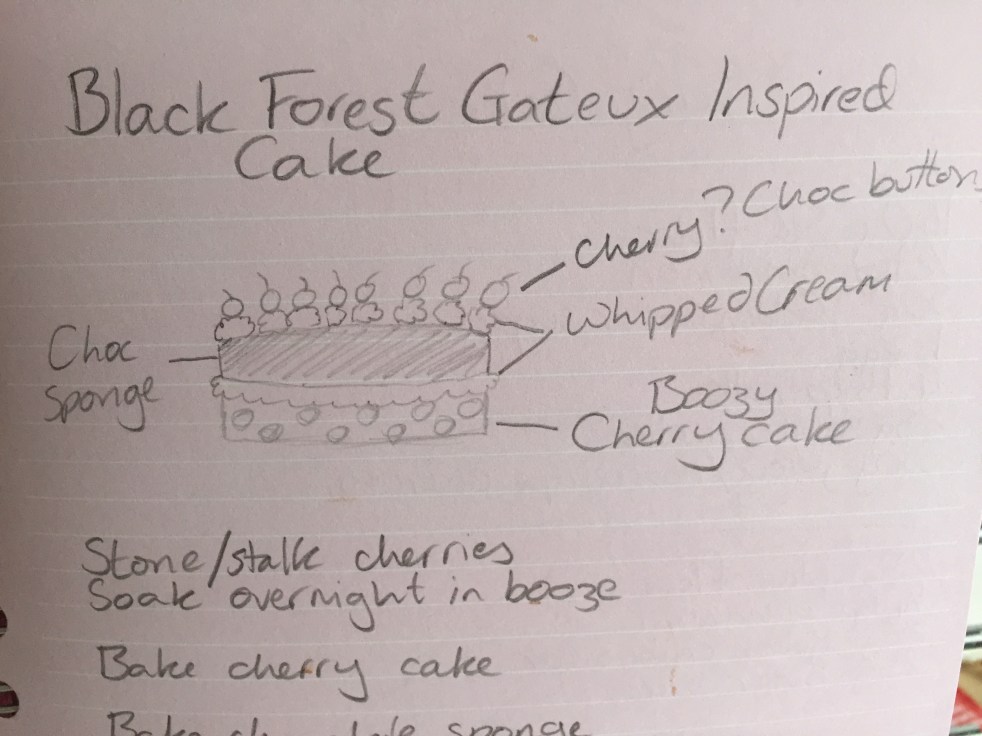 Black Forest Gateux Inspired
Cake
Cherry? Choc button
Whipped Cream
Choc
sponge
Boozy
Cherry cake
Stone/stalk cherries
Soak overnight in booze
Bake cherry cake
sponge